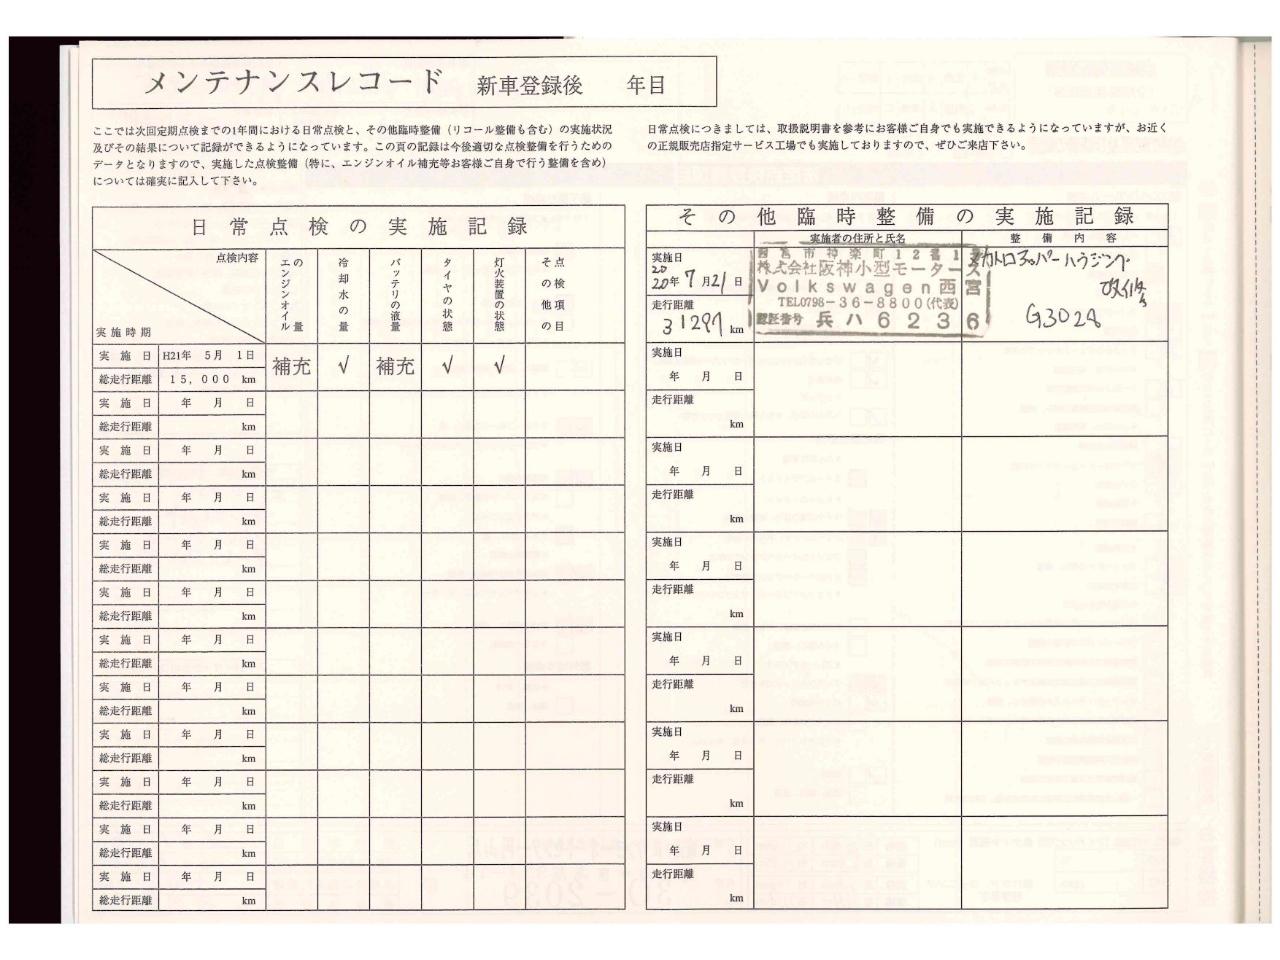 メンテナンスレコード 新車登録後 年目
ここでは次回定期点検までの1年間における日常点検と、その他臨時整備（リコール整備も含む）の実施状況
及びその結果について記録ができるようになっています。この頁の記録は今後適切な点検整備を行うための
データとなりますので、実施した点検整備（特に、エンジンオイル補充等お客様ご自身で行う整備を含め）
については確実に記入して下さい。
日常点検につきましては、取扱説明書を参考にお客様ご自身でも実施できるようになっていますが、お近く
の正規販売店指定サービス工場でも実施しておりますので、ぜひご来店下さい。
日常点検の実施記録
点検内容
実施時期
エンジンオイルの量
冷却水の量
バッテリの液量
タイヤの状態
灯火装置の状態
その他の点検項目
実施日 H21年 5月 1日 補充 √ 補充 √ √
総走行距離 15,000 km
実施日 年 月 日
総走行距離 km
実施日 年 月 日
総走行距離 km
実施日 年 月 日
総走行距離 km
実施日 年 月 日
総走行距離 km
実施日 年 月 日
総走行距離 km
実施日 年 月 日
総走行距離 km
実施日 年 月 日
総走行距離 km
実施日 年 月 日
総走行距離 km
実施日 年 月 日
総走行距離 km
実施日 年 月 日
総走行距離 km
実施日 年 月 日
総走行距離 km
その他臨時整備の実施記録
実施者の住所と氏名 整備内容
実施日
20
20年 7月 21日
走行距離
31297 km
西宮市神楽町12番1
株式会社阪神小型モータース
Volkswagen西宮
TEL0798-36-8800(代表)
認証番号 兵ハ6236
メカトロアッパーハウジング
改修
G3028
実施日
年 月 日
走行距離
km
実施日
年 月 日
走行距離
km
実施日
年 月 日
走行距離
km
実施日
年 月 日
走行距離
km
実施日
年 月 日
走行距離
km
実施日
年 月 日
走行距離
km